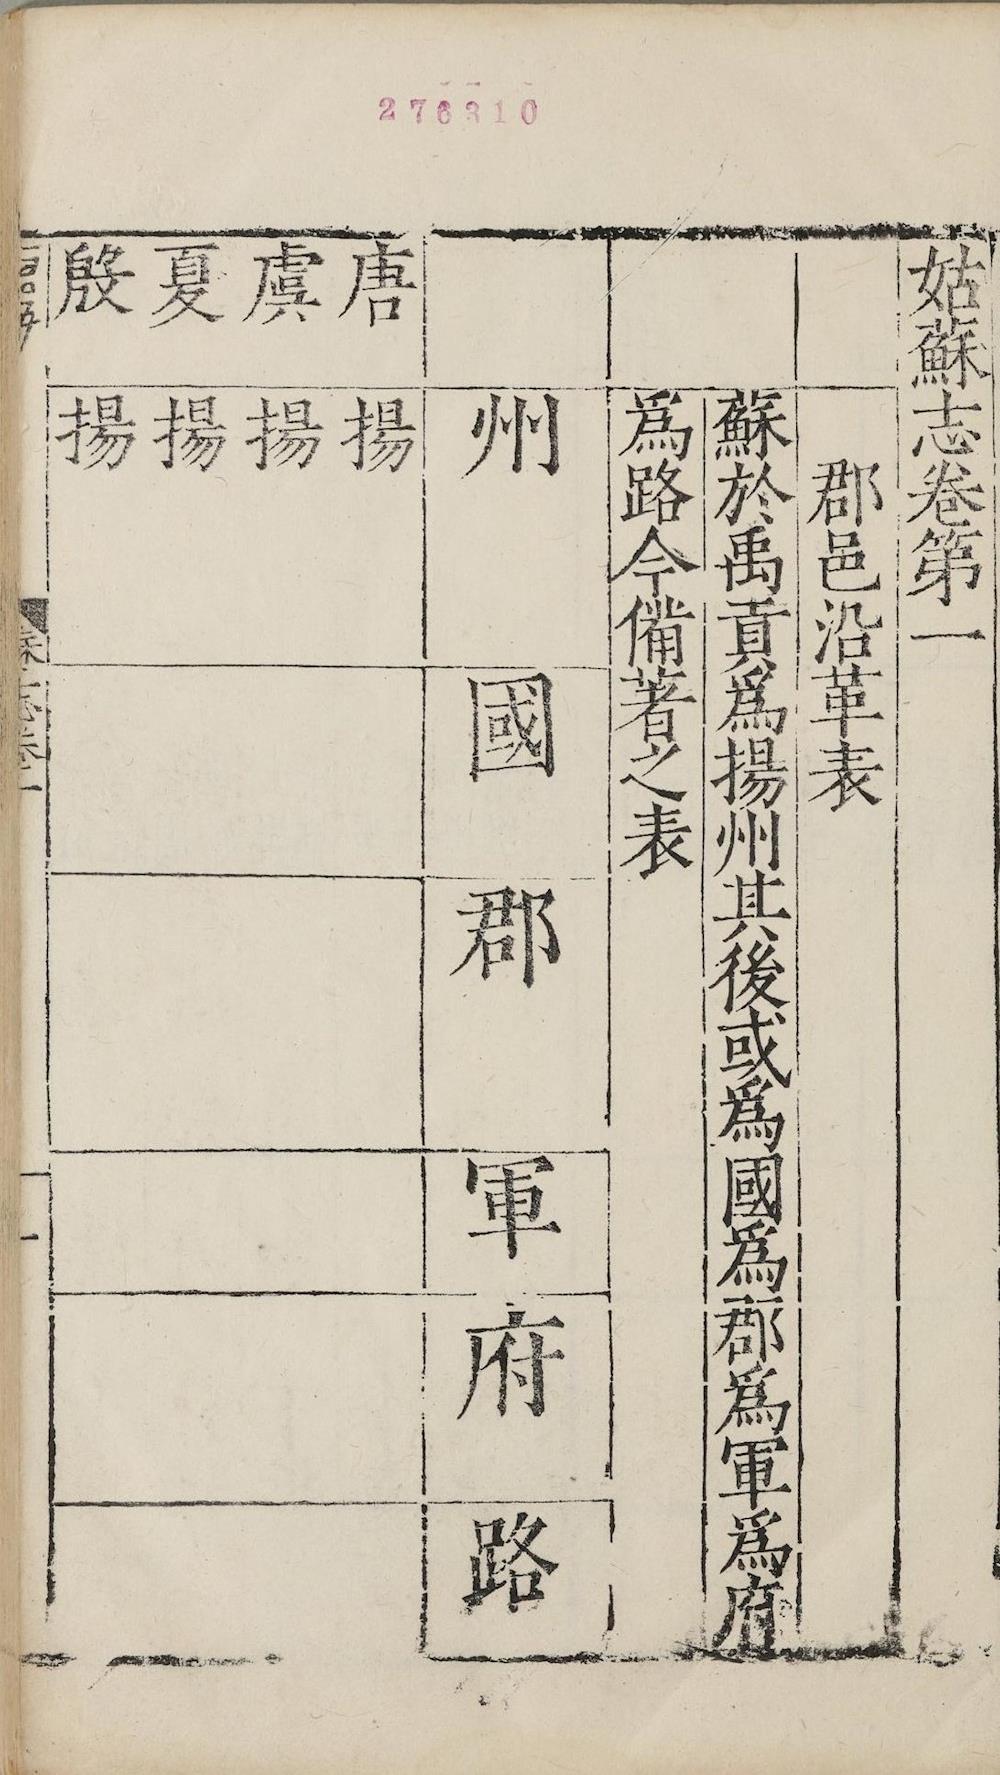 276310
姑蘇志卷第一
郡邑沿革表
蘇於禹貢爲揚州其後或爲國爲郡爲軍爲府
爲路今備著之表
州 國 郡 軍 府 路
唐 揚
虞 揚
夏 揚
殷 揚